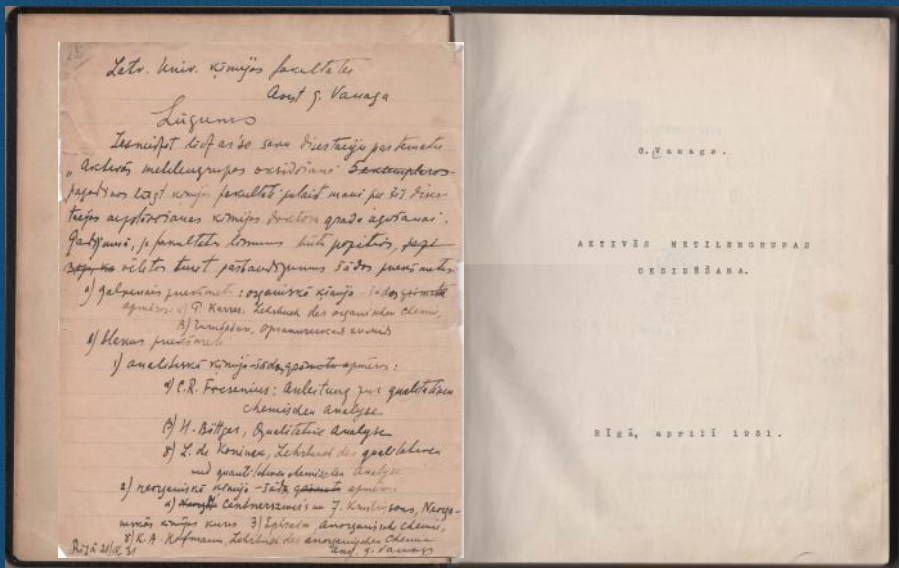 Latv. Univ. ķīmijas fakultātei
Asist G. Vanaga
Lūgums
Iesniedzot līdz ar šo savu disertaciju par tematu
„Aktivās metilengrupas oksidēšana 5 eksemplaros
pagodinos lūgt ķīmijas fakultāti pielaist mani pie šīs diser-
tacijas aizstāvēšanas ķīmijas doktora grada iegūšanai.
Gadijumā, ja fakultates lēmums būtu pozitivs,
vēlētos turet pārbaudijumus šādos priekšmetos
a) galvenais priekšmets: organiskā ķīmija – šādos
apmēros: α) P. Karrer. Lehrbuch des organischen Chemie,
β) органическая химия
b) blakus priekšmeti
1) analitiskā ķīmija šādos apmēros:
α) C.R. Fresenius: Anleitung zur qualitativen
chemischen Analyse
β) W. Böttger, Qualitative Analyse
γ) L. de Koninck, Lehrbuch des qualitativen
und quantitativen chemischen Analyse
2) neorganiskā ķīmija – šādos apmēros
α) Centnerszwers un J. Krustinsons, Neorga-
niskās ķīmijas kurss β) Ephraim, Anorganische Chemie,
γ) K. A. Hofmann, Lehrbuch des anorganischen Chemie
Rīgā 31 G. Vanags
G. Vanags.
AKTIVĀS METILENGRUPAS
OKSIDĒŠANA.
Rīgā, aprilī 1931.